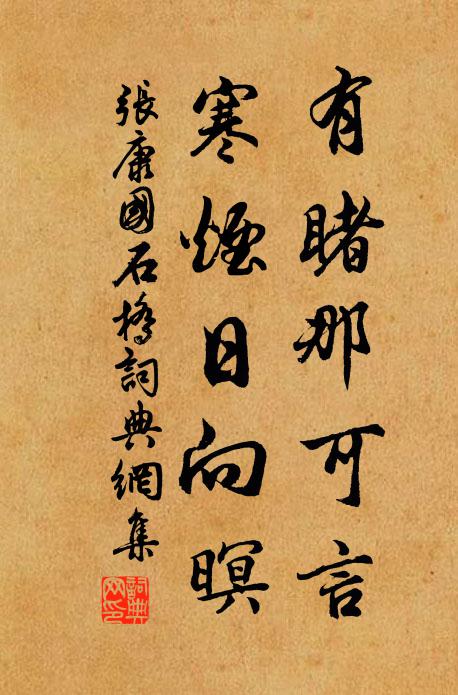 有睹那可言
寒煙日向暝
張康國石橋詞典網集
詞典網印